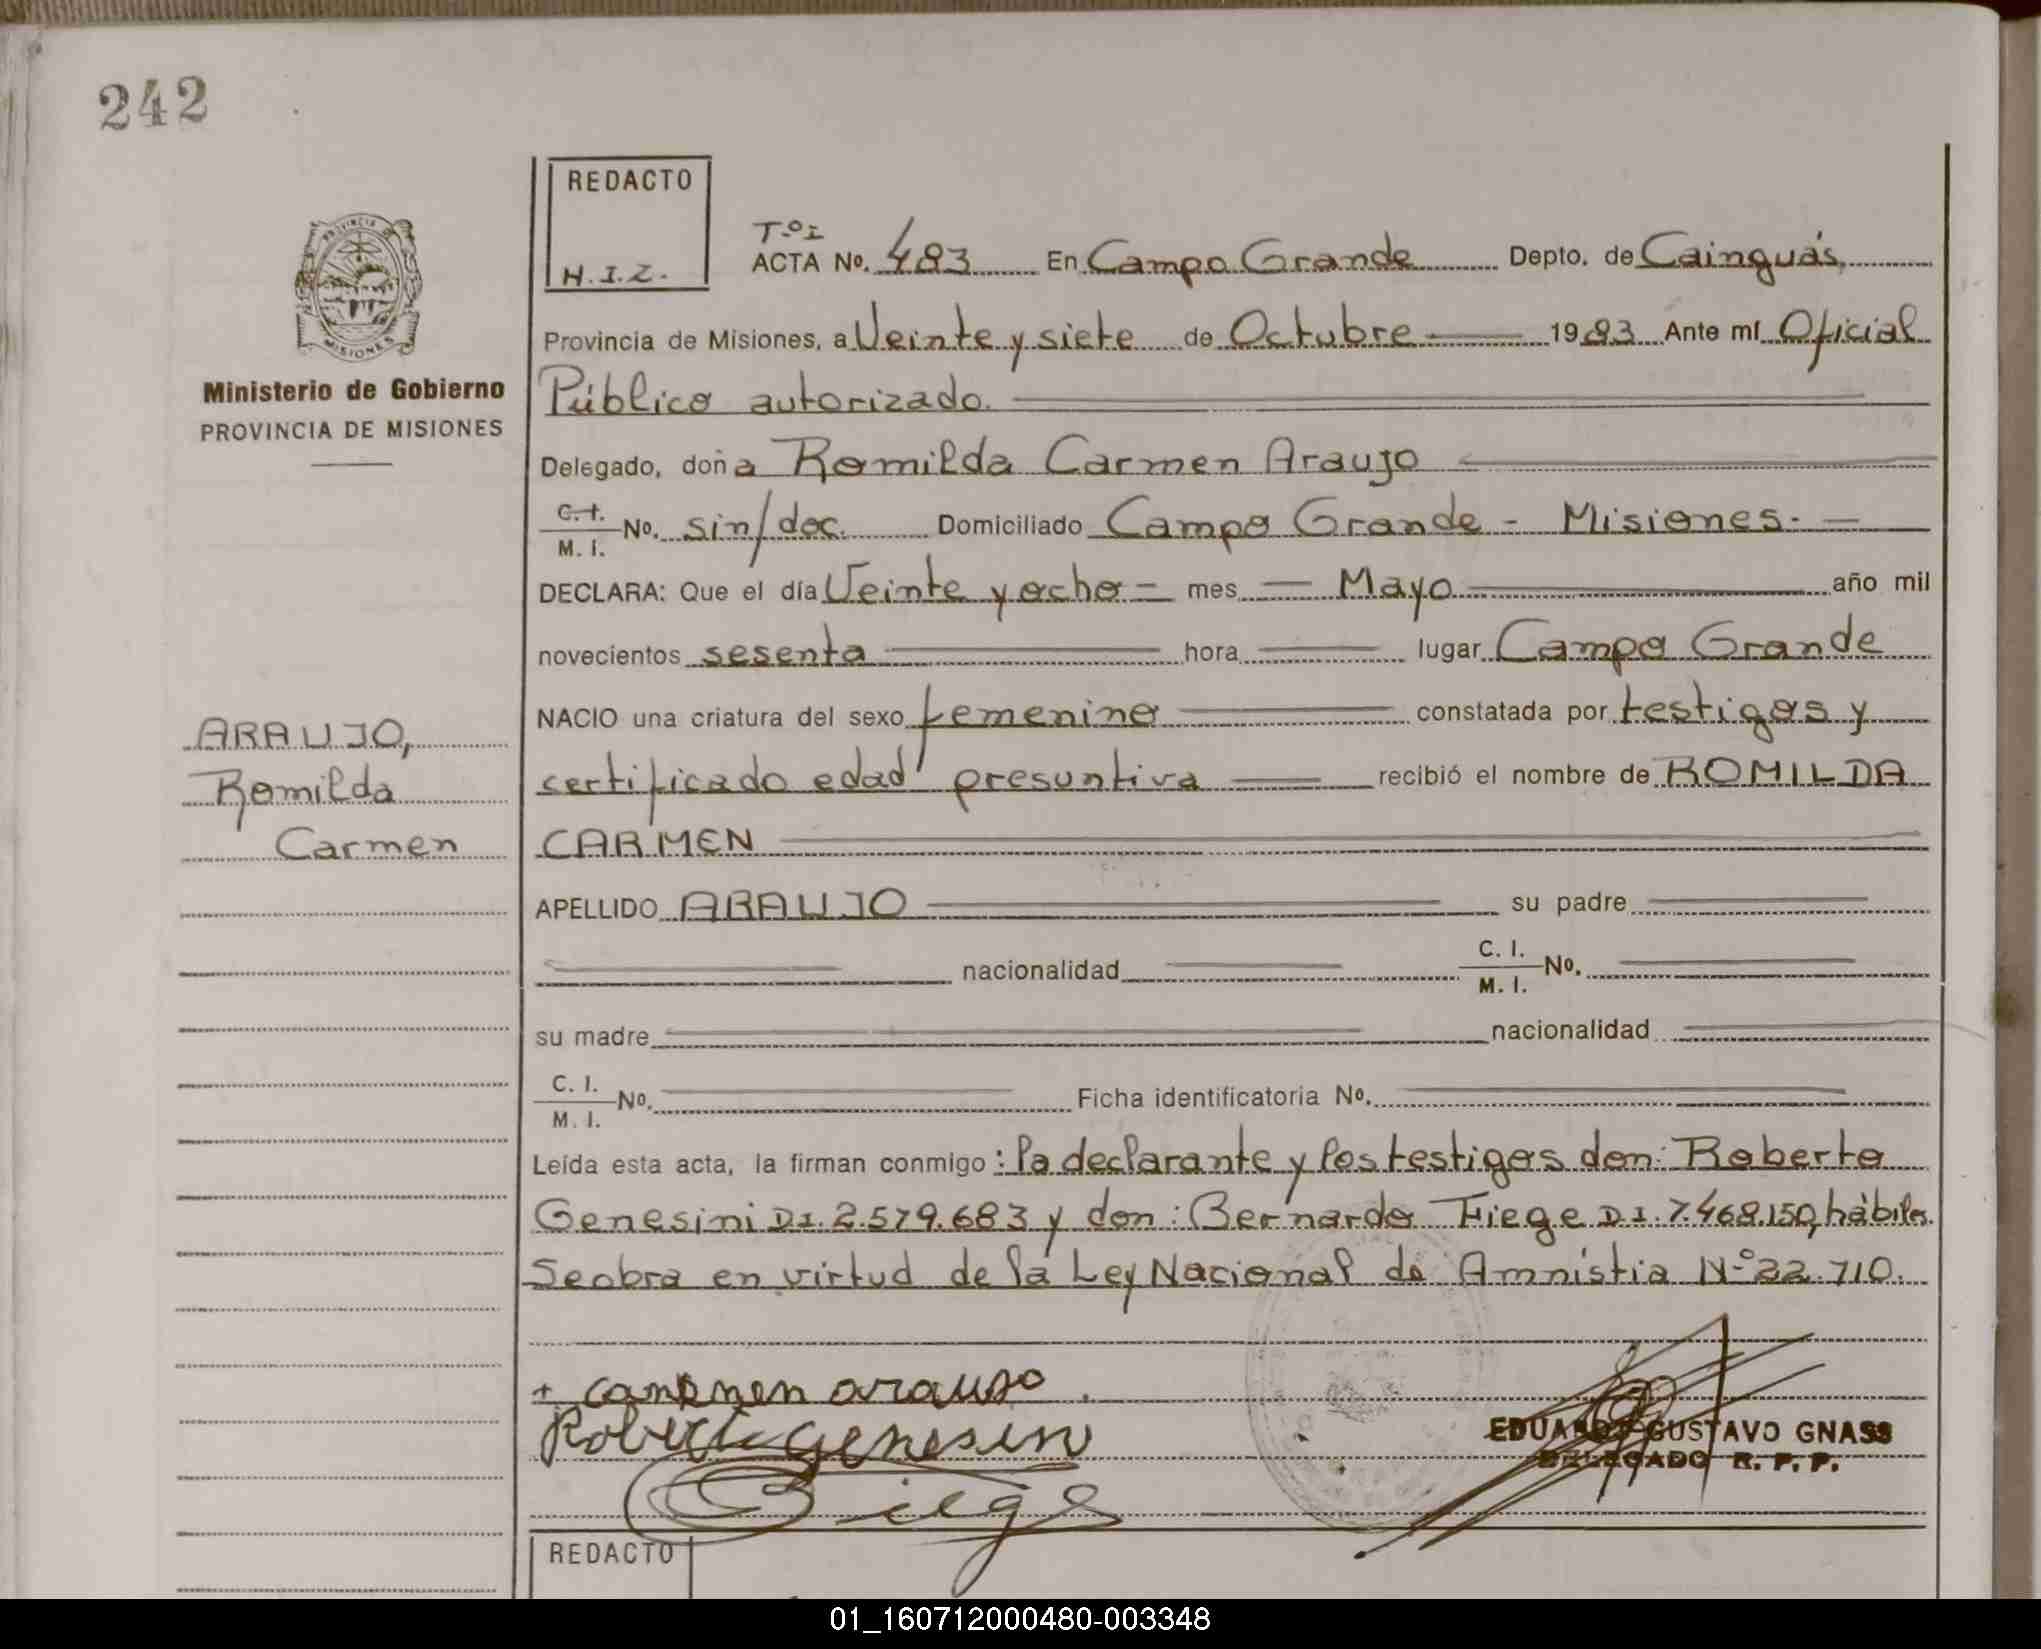 242
REDACTO
H.I.Z.
PROVINCIA
MISIONES
Ministerio de Gobierno
PROVINCIA DE MISIONES
ARAUJO,
Romilda
Carmen
Tº I
ACTA Nº. 483 En Campo Grande Depto. de Cainguás,
Provincia de Misiones, a Veinte y siete de Octubre 1983 Ante mí Oficial
Público autorizado.
Delegado, doña Romilda Carmen Araujo
C.I. / M.I. Nº. sin/doc. Domiciliado Campo Grande - Misiones.
DECLARA: Que el día Veinte y ocho mes Mayo año mil
novecientos sesenta hora lugar Campo Grande
NACIO una criatura del sexo femenino constatada por testigos y
certificado edad presuntiva recibió el nombre de ROMILDA
CARMEN
APELLIDO ARAUJO su padre
nacionalidad C. I. / M. I. Nº.
su madre nacionalidad
C. I. / M. I. Nº. Ficha identificatoria Nº.
Leída esta acta, la firman conmigo: la declarante y los testigos don: Roberto
Genesini D.I. 2.579.683 y don: Bernardo Fiege D.I. 7.468.150, hábiles.
Se obra en virtud de la Ley Nacional de Amnistia Nº 22.710.
+ carmen araujo.
Roberto Genesini
Fiege
EDUARDO GUSTAVO GNASS
DELEGADO R. P. P.
REDACTO
01_160712000480-003348